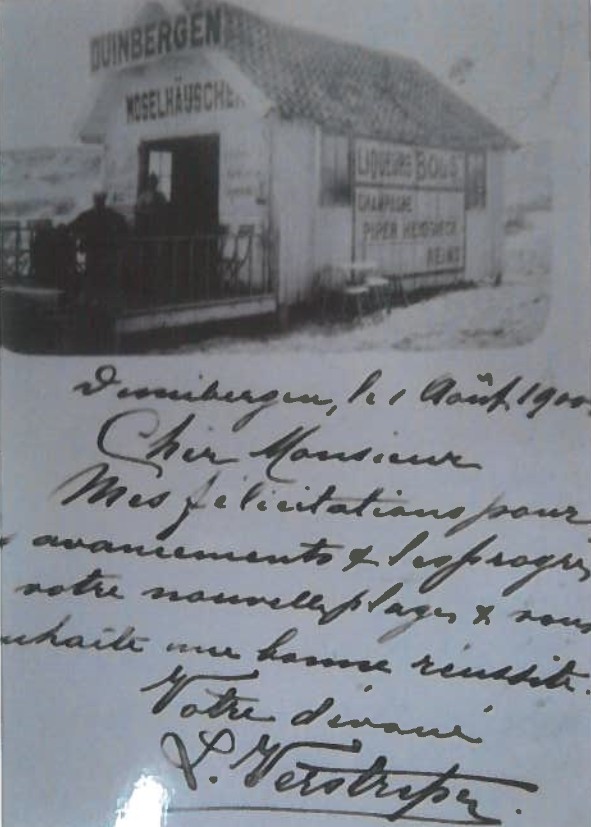 DUINBERGEN
MOSELHÄUSCHEN
LIQUEURS BOLS
CHAMPAGNE
PIPER HEIDSIECK
REIMS
Duinbergen, le 1 Août 1900
Cher Monsieur
Mes félicitations pour
avancements & les progrès
votre nouvelle plage & vous
souhaite une bonne réussite.
Votre dévoué
L.